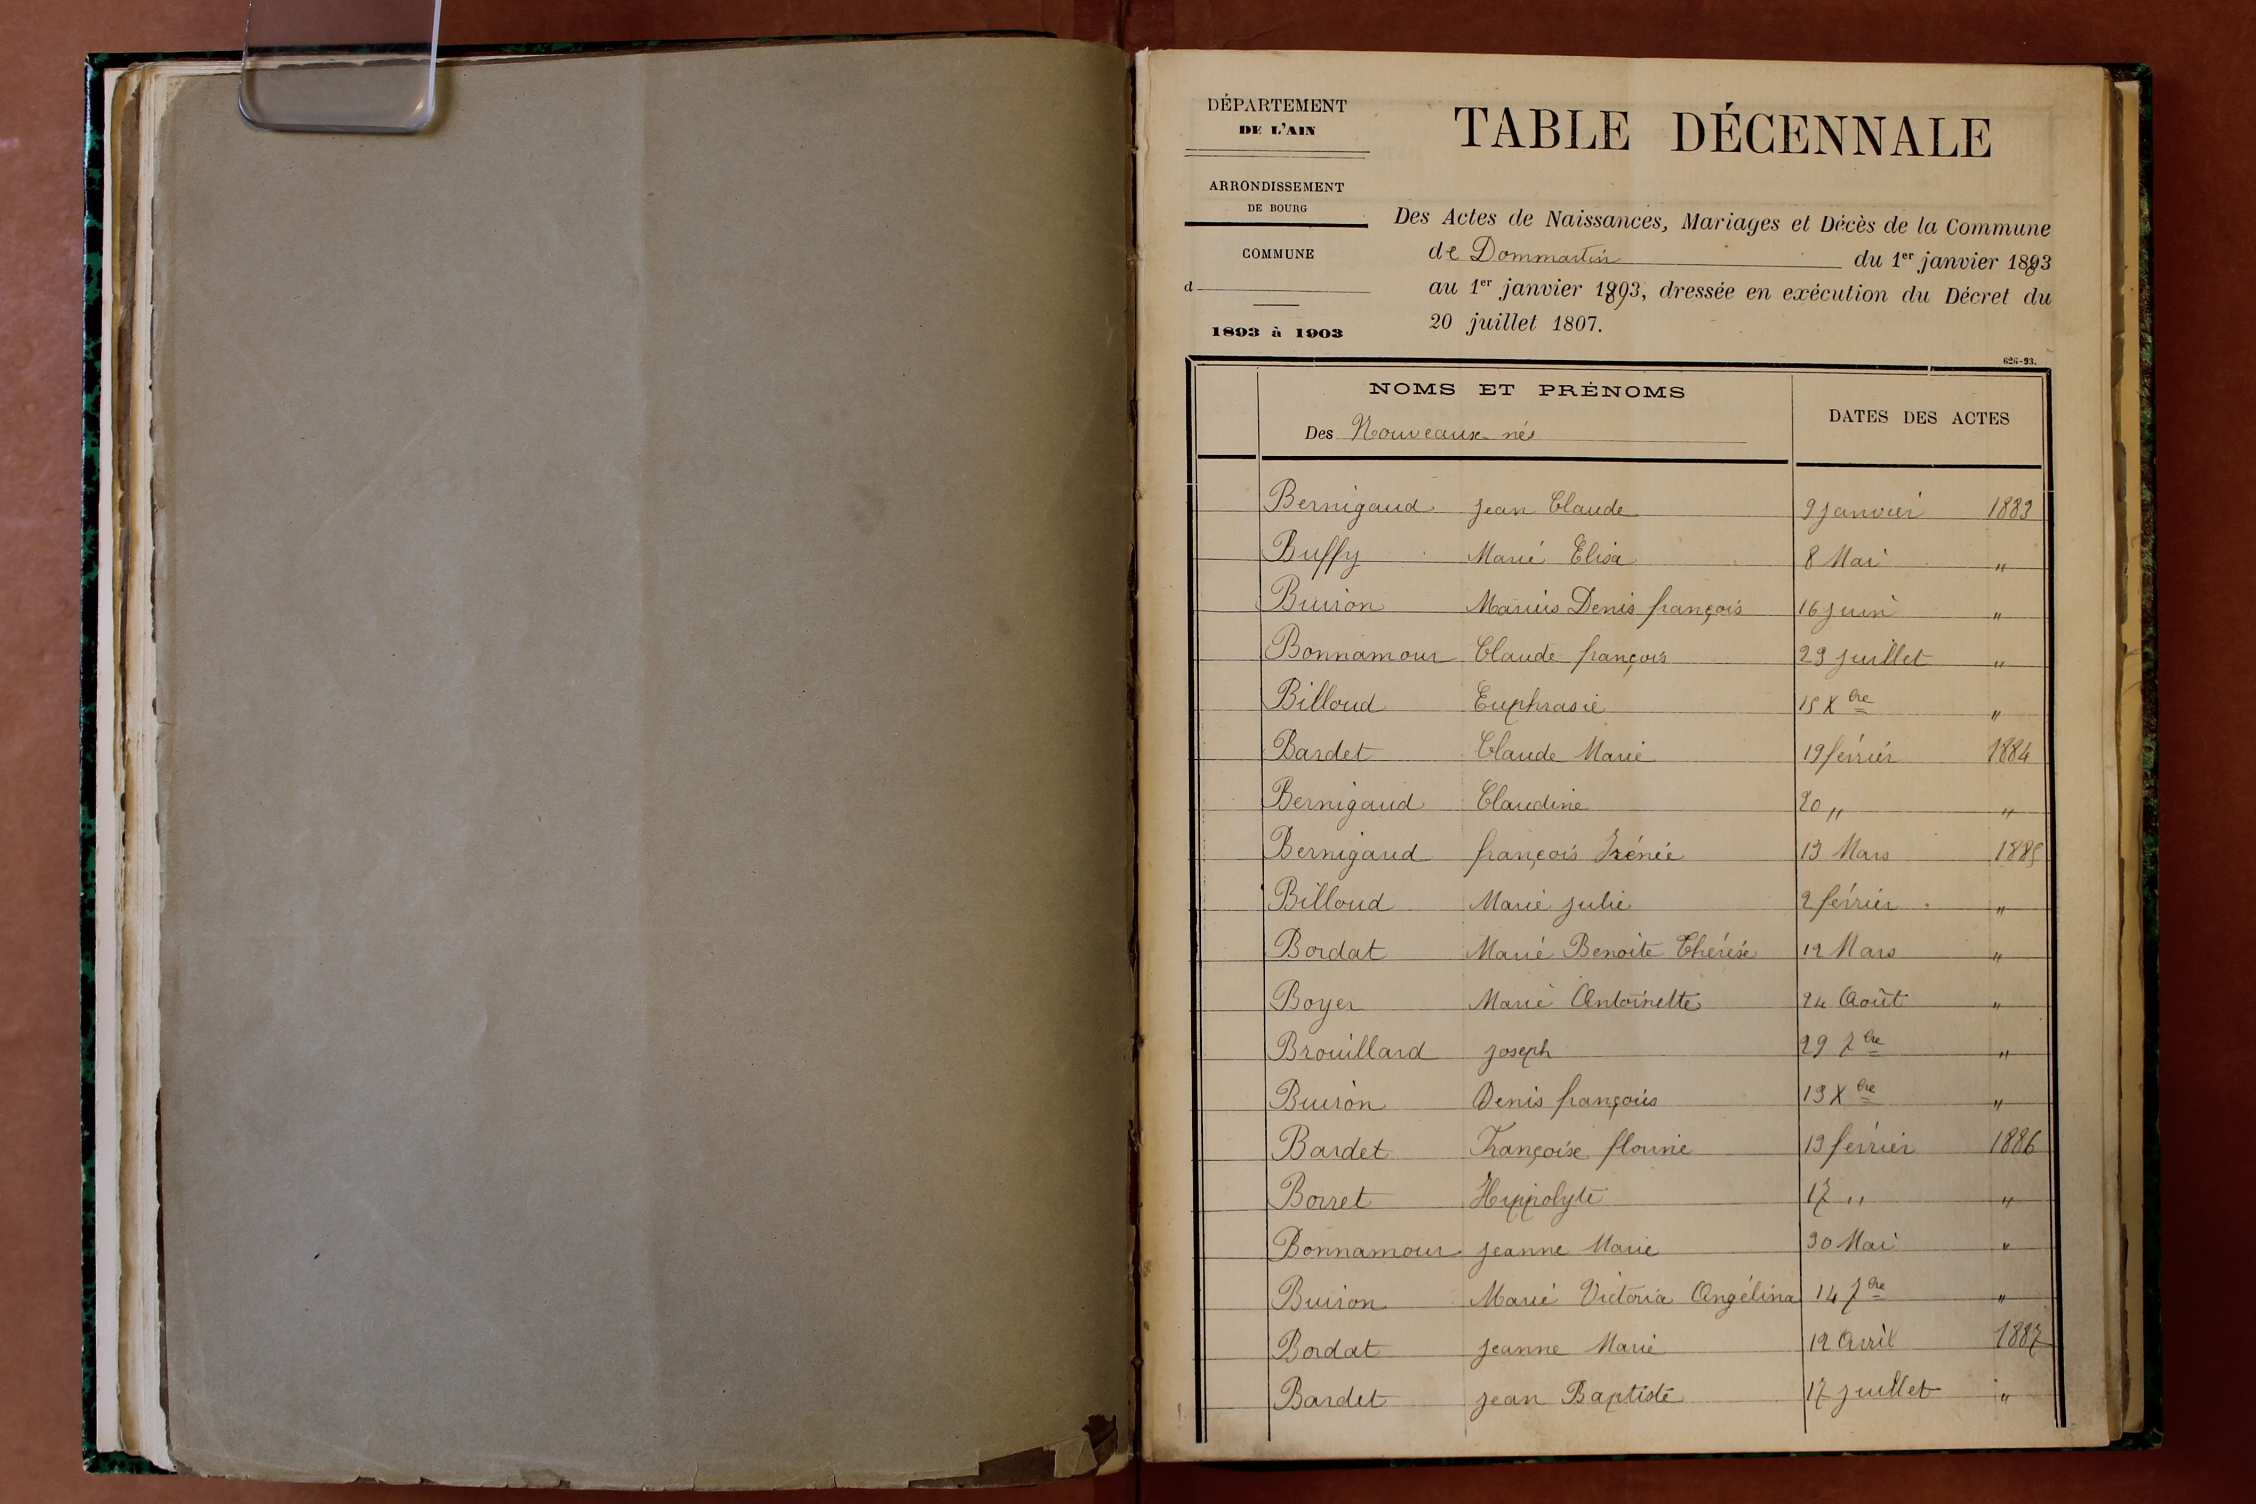 DÉPARTEMENT
DE L'AIN
ARRONDISSEMENT
DE BOURG
COMMUNE
d
1893 à 1903
TABLE DÉCENNALE
Des Actes de Naissances, Mariages et Décès de la Commune
de Dommartin du 1er janvier 1883
au 1er janvier 1893, dressée en exécution du Décret du
20 juillet 1807.
626-93.
NOMS ET PRÉNOMS
Des Nouveaux nés
DATES DES ACTES
Bernigaud Jean Claude 9 janvier 1883
Buffy Marie Elisa 8 Mai "
Buiron Marius Denis françois 16 juin "
Bonnamour Claude françois 29 juillet "
Billoud Euphrasie 15 Xbre "
Bardet Claude Marie 19 février 1884
Bernigaud Claudine 20 " "
Bernigaud françois Irénée 13 Mars 1885
Billoud Marie Julie 2 février "
Bordat Marie Benoite Thérèse 12 Mars "
Boyer Marie Antoinette 24 Août "
Brouillard Joseph 29 7bre "
Buiron Denis françois 13 Xbre "
Bardet Françoise florine 13 février 1886
Borret Hippolyte 17 " "
Bonnamour Jeanne Marie 30 Mai "
Buiron Marie Victoria Angélina 14 7bre "
Bordat Jeanne Marie 12 Avril 1887
Bardet Jean Baptiste 17 juillet "